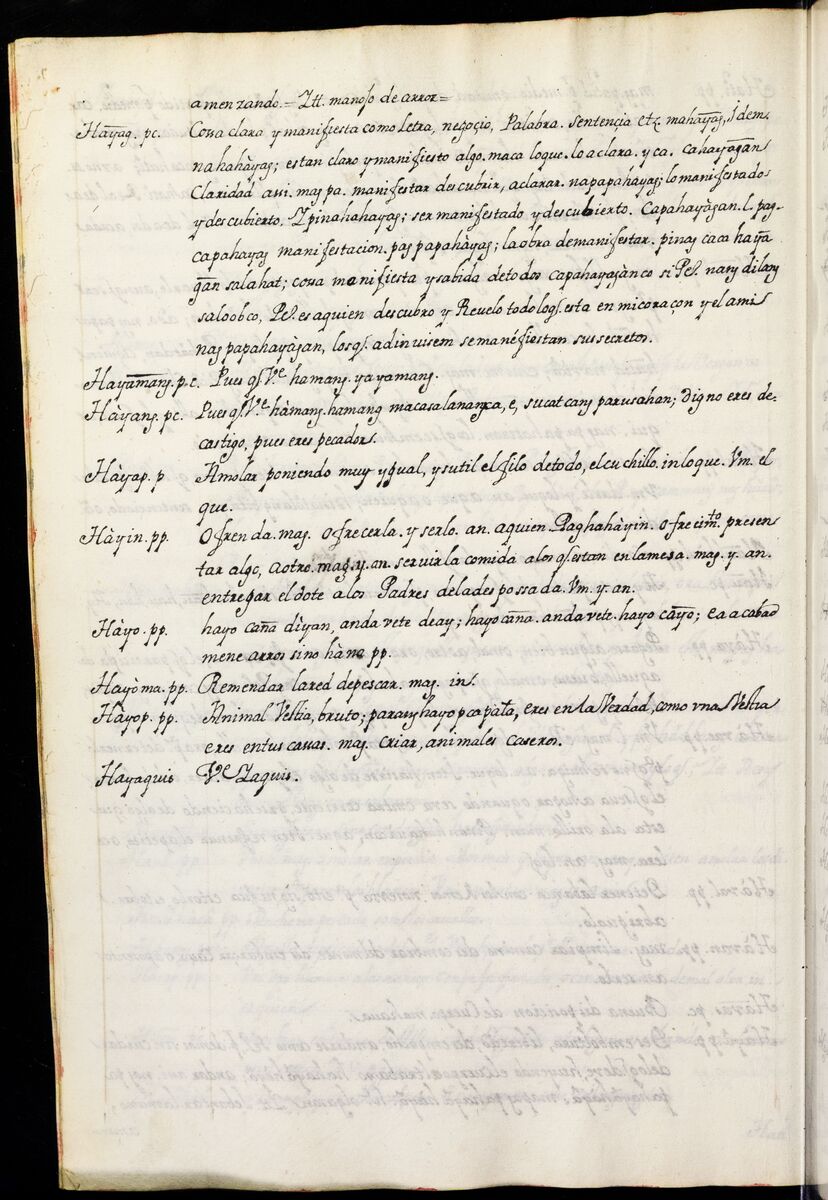 amenzando.= Ytt. manojo de arroz=
Hàyag. pc. Cossa clara y manifiesta como letra, negoçio, Palabra. Sentençia etz. mahàyag, idem
nahahàyag; estan claro y manifiesto algo. maca loque. lo aclara. y ca. cahayàgan
Claridad assi. mag pa. manifestar descubrir, aclarar. napapahayag; lo manifestado
y descubierto. Ypinahahayag; ser manifestado y descubierto. Capahayàgan. l. pag-
capahayag manifestacion. pagpapahàyag; la obra demanifestar. pinag caca haya
gan salahat; cossa manifiesta ysabida detodos capahayagànco si Pe. nang dilang
saloobco, Pe. es aquien descubro y Revelo todo loq. esta en micoraçon y el ami
nag papahayàgan, losq. adinuisem semanéfiestan sus secretos.
Hayamang. p.c. Pues q. Ve. hamang. yayamang.
Hàyang. pc. Pues q. Ve. hàmang. hamang macasalanangca, e, sucat cang parusahan; digno eres de-
castigo, pues eres pecador.
Hàyap. p Amolar poniendo muy ygual, y sutil el filo detodo, el cuchillo. in loque. Vm. el
que.
Hàyin. pp. Ofrenda. mag. ofrecerla. y serlo. an. aquien Paghahàyin. ofrecimto. presen
tar algo, aotro. mag. y. an. servir la comida alos q. estan enlamesa. mag. y. an.
entregar el dote alos Padres deladespossada. Vm. y. an.
Hàyo. pp. hayo caña dìyan, anda vete deay; hayo caña. anda vete. hayo càyo; ea acabad
mene arros sino hàna pp.
Hayòma. pp. Remendar lared depescar. mag. in.
Hàyop. pp. Animal Vestia, bruto; parang hayop ca pàla, eres en la Verdad, como vna Vestia
eres entus cassas. mag. criar, animales caseros.
Hayaquis Ve. Yaquis.